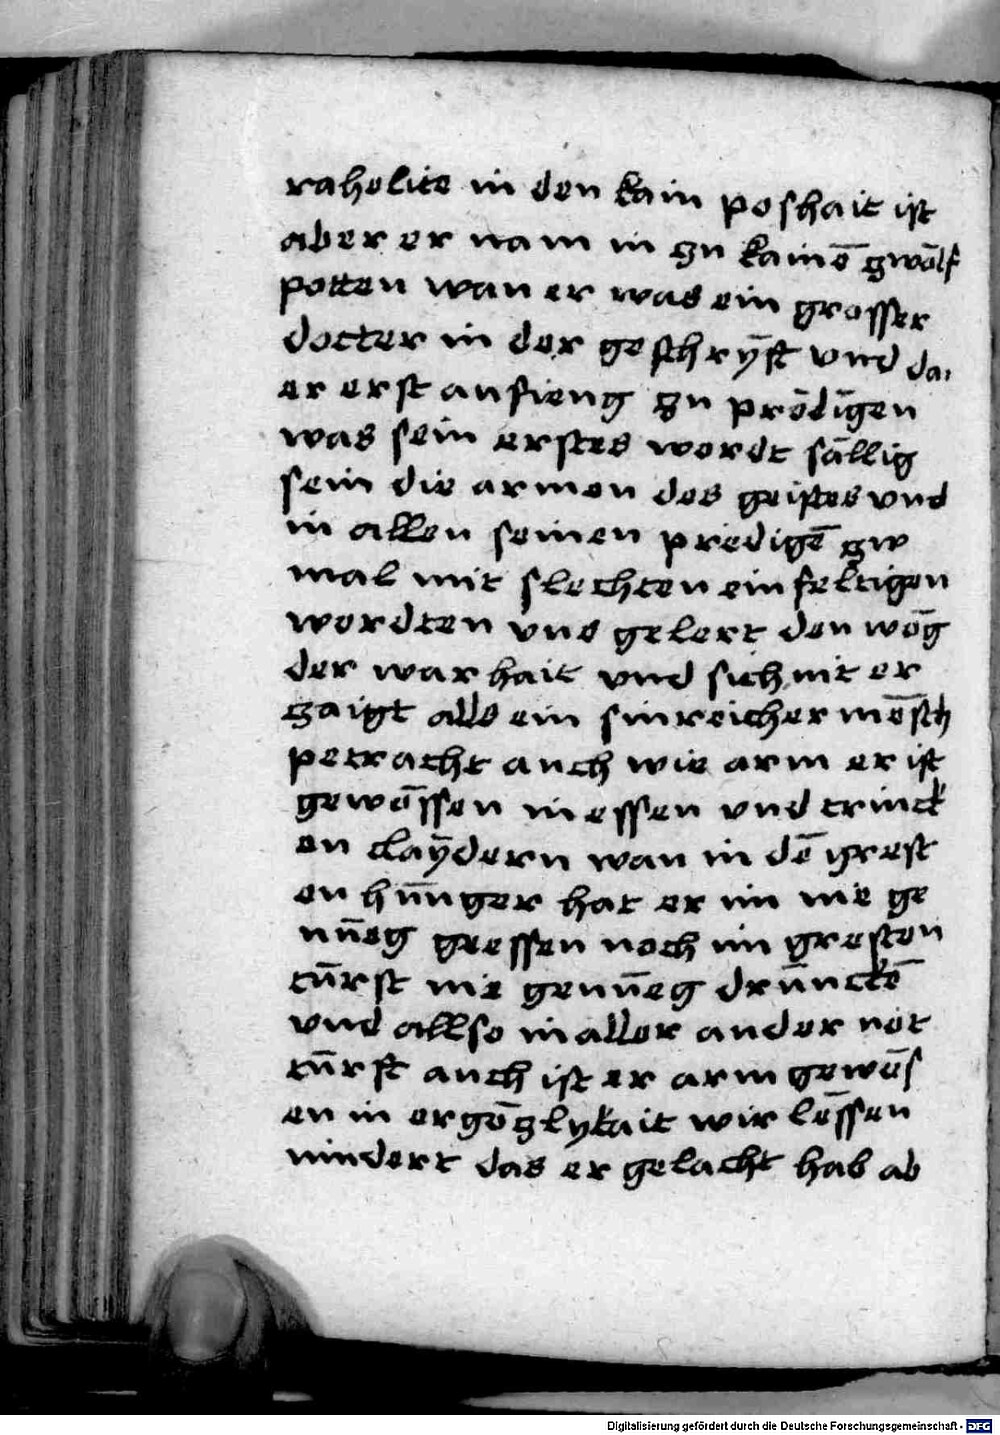 rahelite in den kain poshait ist
aber er nam in zu kainē zwölf
potten wan er was ein grosser
docter in der geschrÿft vnd da
er erst anfieng zu prödigen
was sein erstes wordt sällig
sein die armen des geistes vnd
in allen seinen predigē zw
mal mit slechten einfeltigen
wordten vns gelert den wög
der warhait vnd sich nit er
zaigt alls ein sinreicher mēsch
petracht auch wie arm er ist
gewössen in essen vnd trinck
en claÿdern wan in dē grest
en hūnger hat er im nie ge
nūeg geessen noch im gresten
tūrst nie genūeg drūnckē
vnd allso in aller ander not
tūrft auch ist er arm gewēs
en in ergözlykait wir lēssen
nindert das er gelacht hab ab
Digitalisierung gefördert durch die Deutsche Forschungsgemeinschaft - DFG